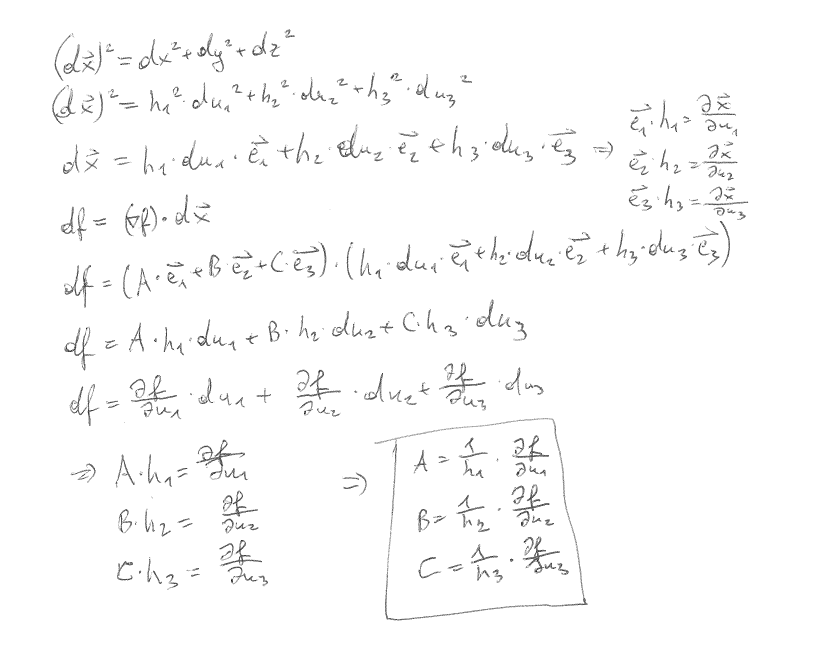 (dx⃗)² = dx² + dy² + dz²
(dx⃗)² = h₁²·du₁² + h₂²·du₂² + h₃²·du₃²
dx⃗ = h₁·du₁·e₁⃗ + h₂·du₂·e₂⃗ + h₃·du₃·e₃⃗ ⇒
e₁⃗·h₁ = ∂x⃗/∂u₁
e₂⃗·h₂ = ∂x⃗/∂u₂
e₃⃗·h₃ = ∂x⃗/∂u₃
df = (∇f)·dx⃗
df = (A·e₁⃗ + B·e₂⃗ + C·e₃⃗)·(h₁·du₁·e₁⃗ + h₂·du₂·e₂⃗ + h₃·du₃·e₃⃗)
df = A·h₁·du₁ + B·h₂·du₂ + C·h₃·du₃
df = ∂f/∂u₁·du₁ + ∂f/∂u₂·du₂ + ∂f/∂u₃·du₃
⇒ A·h₁ = ∂f/∂u₁
B·h₂ = ∂f/∂u₂
C·h₃ = ∂f/∂u₃
⇒ A = 1/h₁·∂f/∂u₁
B = 1/h₂·∂f/∂u₂
C = 1/h₃·∂f/∂u₃